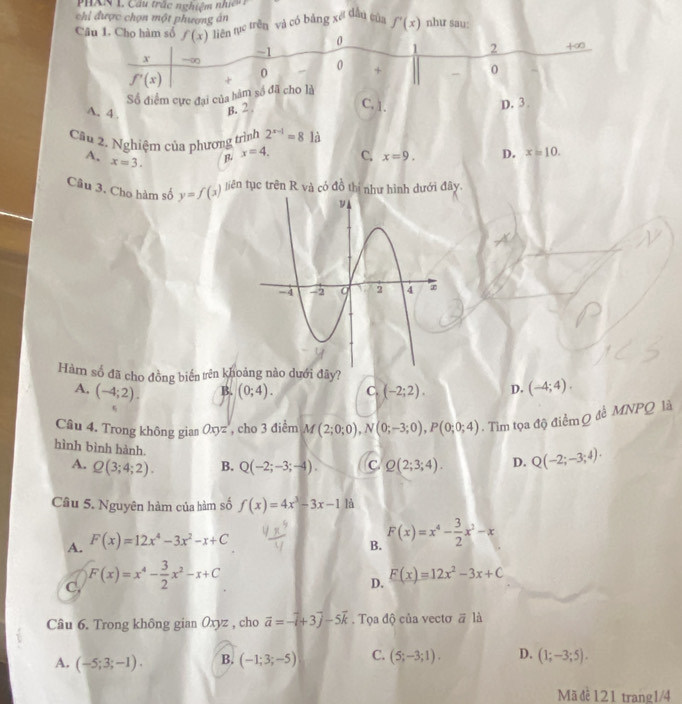 PHẦN I. Câu trắc nghiệm nhiều
chỉ được chọn một phương án
Câu 1. Cho hàm số f(x) liên tục trên và có bảng xét dấu của f'(x) như sau:
x −∞ −1 0 1 2 +∞
f'(x) + 0 − 0 + || − 0
Số điểm cực đại của hàm số đã cho là
A. 4. B. 2. C. 1. D. 3.
Câu 2. Nghiệm của phương trình 2^{x-1} = 8 là
A. x = 3. B. x = 4. C. x = 9. D. x = 10.
Câu 3. Cho hàm số y = f(x) liên tục trên R và có đồ thị như hình dưới đây.
y
−4 −2 O 2 4 x
Hàm số đã cho đồng biến trên khoảng nào dưới đây?
A. (−4;2). B. (0;4). C. (−2;2). D. (−4;4).
Câu 4. Trong không gian Oxyz, cho 3 điểm M(2;0;0), N(0;−3;0), P(0;0;4). Tìm tọa độ điểm Q để MNPQ là
hình bình hành.
A. Q(3;4;2). B. Q(−2;−3;−4). C. Q(2;3;4). D. Q(−2;−3;4).
Câu 5. Nguyên hàm của hàm số f(x) = 4x³ − 3x − 1 là
A. F(x) = 12x⁴ − 3x² − x + C. B. F(x) = x⁴ − \frac{3}{2}x² − x.
C. F(x) = x⁴ − \frac{3}{2}x² − x + C. D. F(x) = 12x² − 3x + C.
Câu 6. Trong không gian Oxyz, cho \vec{a} = −\vec{i} + 3\vec{j} − 5\vec{k}. Tọa độ của vectơ \vec{a} là
A. (−5;3;−1). B. (−1;3;−5) C. (5;−3;1). D. (1;−3;5).
Mã đề 121 trang1/4